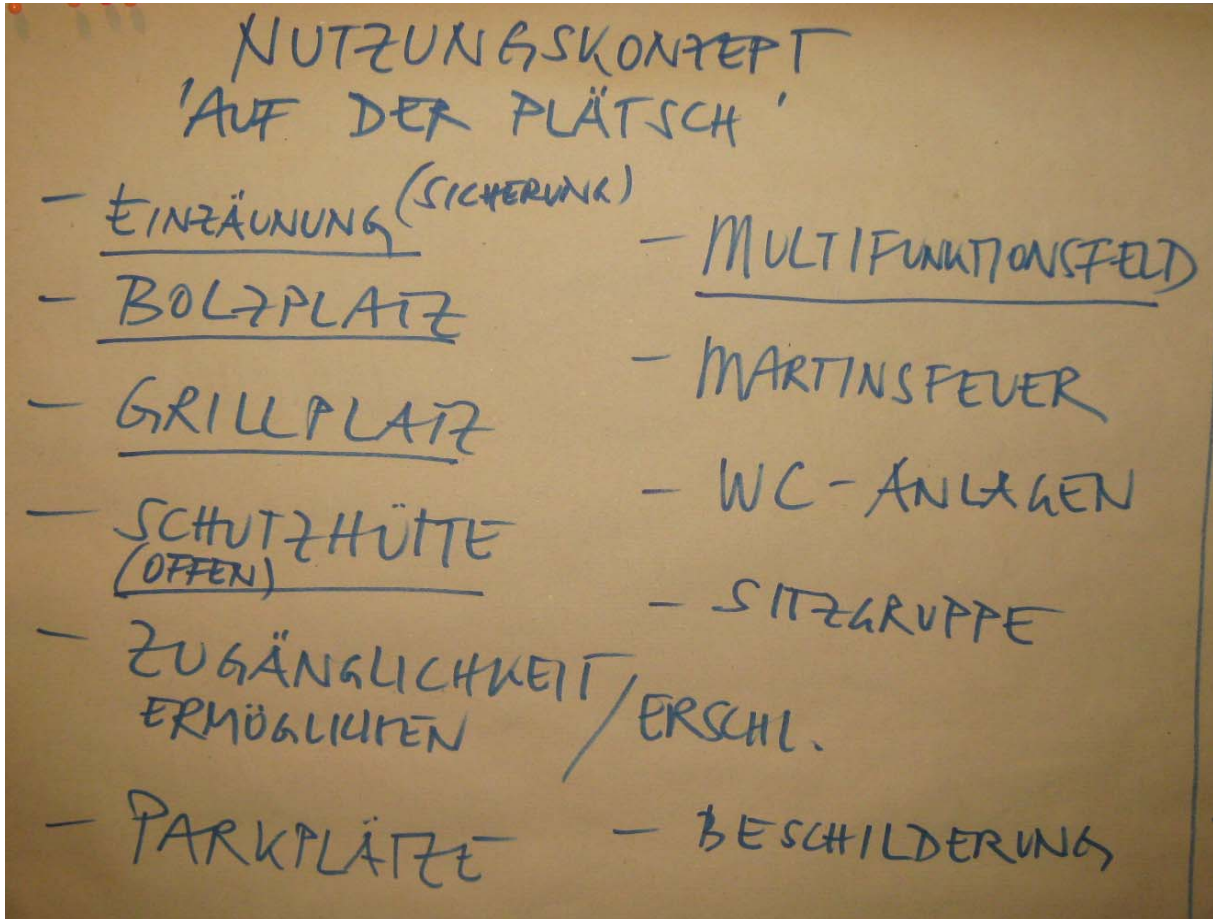 NUTZUNGSKONZEPT
'AUF DER PLÄTSCH'
- EINZÄUNUNG (SICHERUNG)
- BOLZPLATZ
- GRILLPLATZ
- SCHUTZHÜTTE
(OFFEN)
- ZUGÄNGLICHKEIT
ERMÖGLICHEN / ERSCHL.
- PARKPLÄTZE
- MULTIFUNKTIONSFELD
- MARTINSFEUER
- WC-ANLAGEN
- SITZGRUPPE
- BESCHILDERUNG